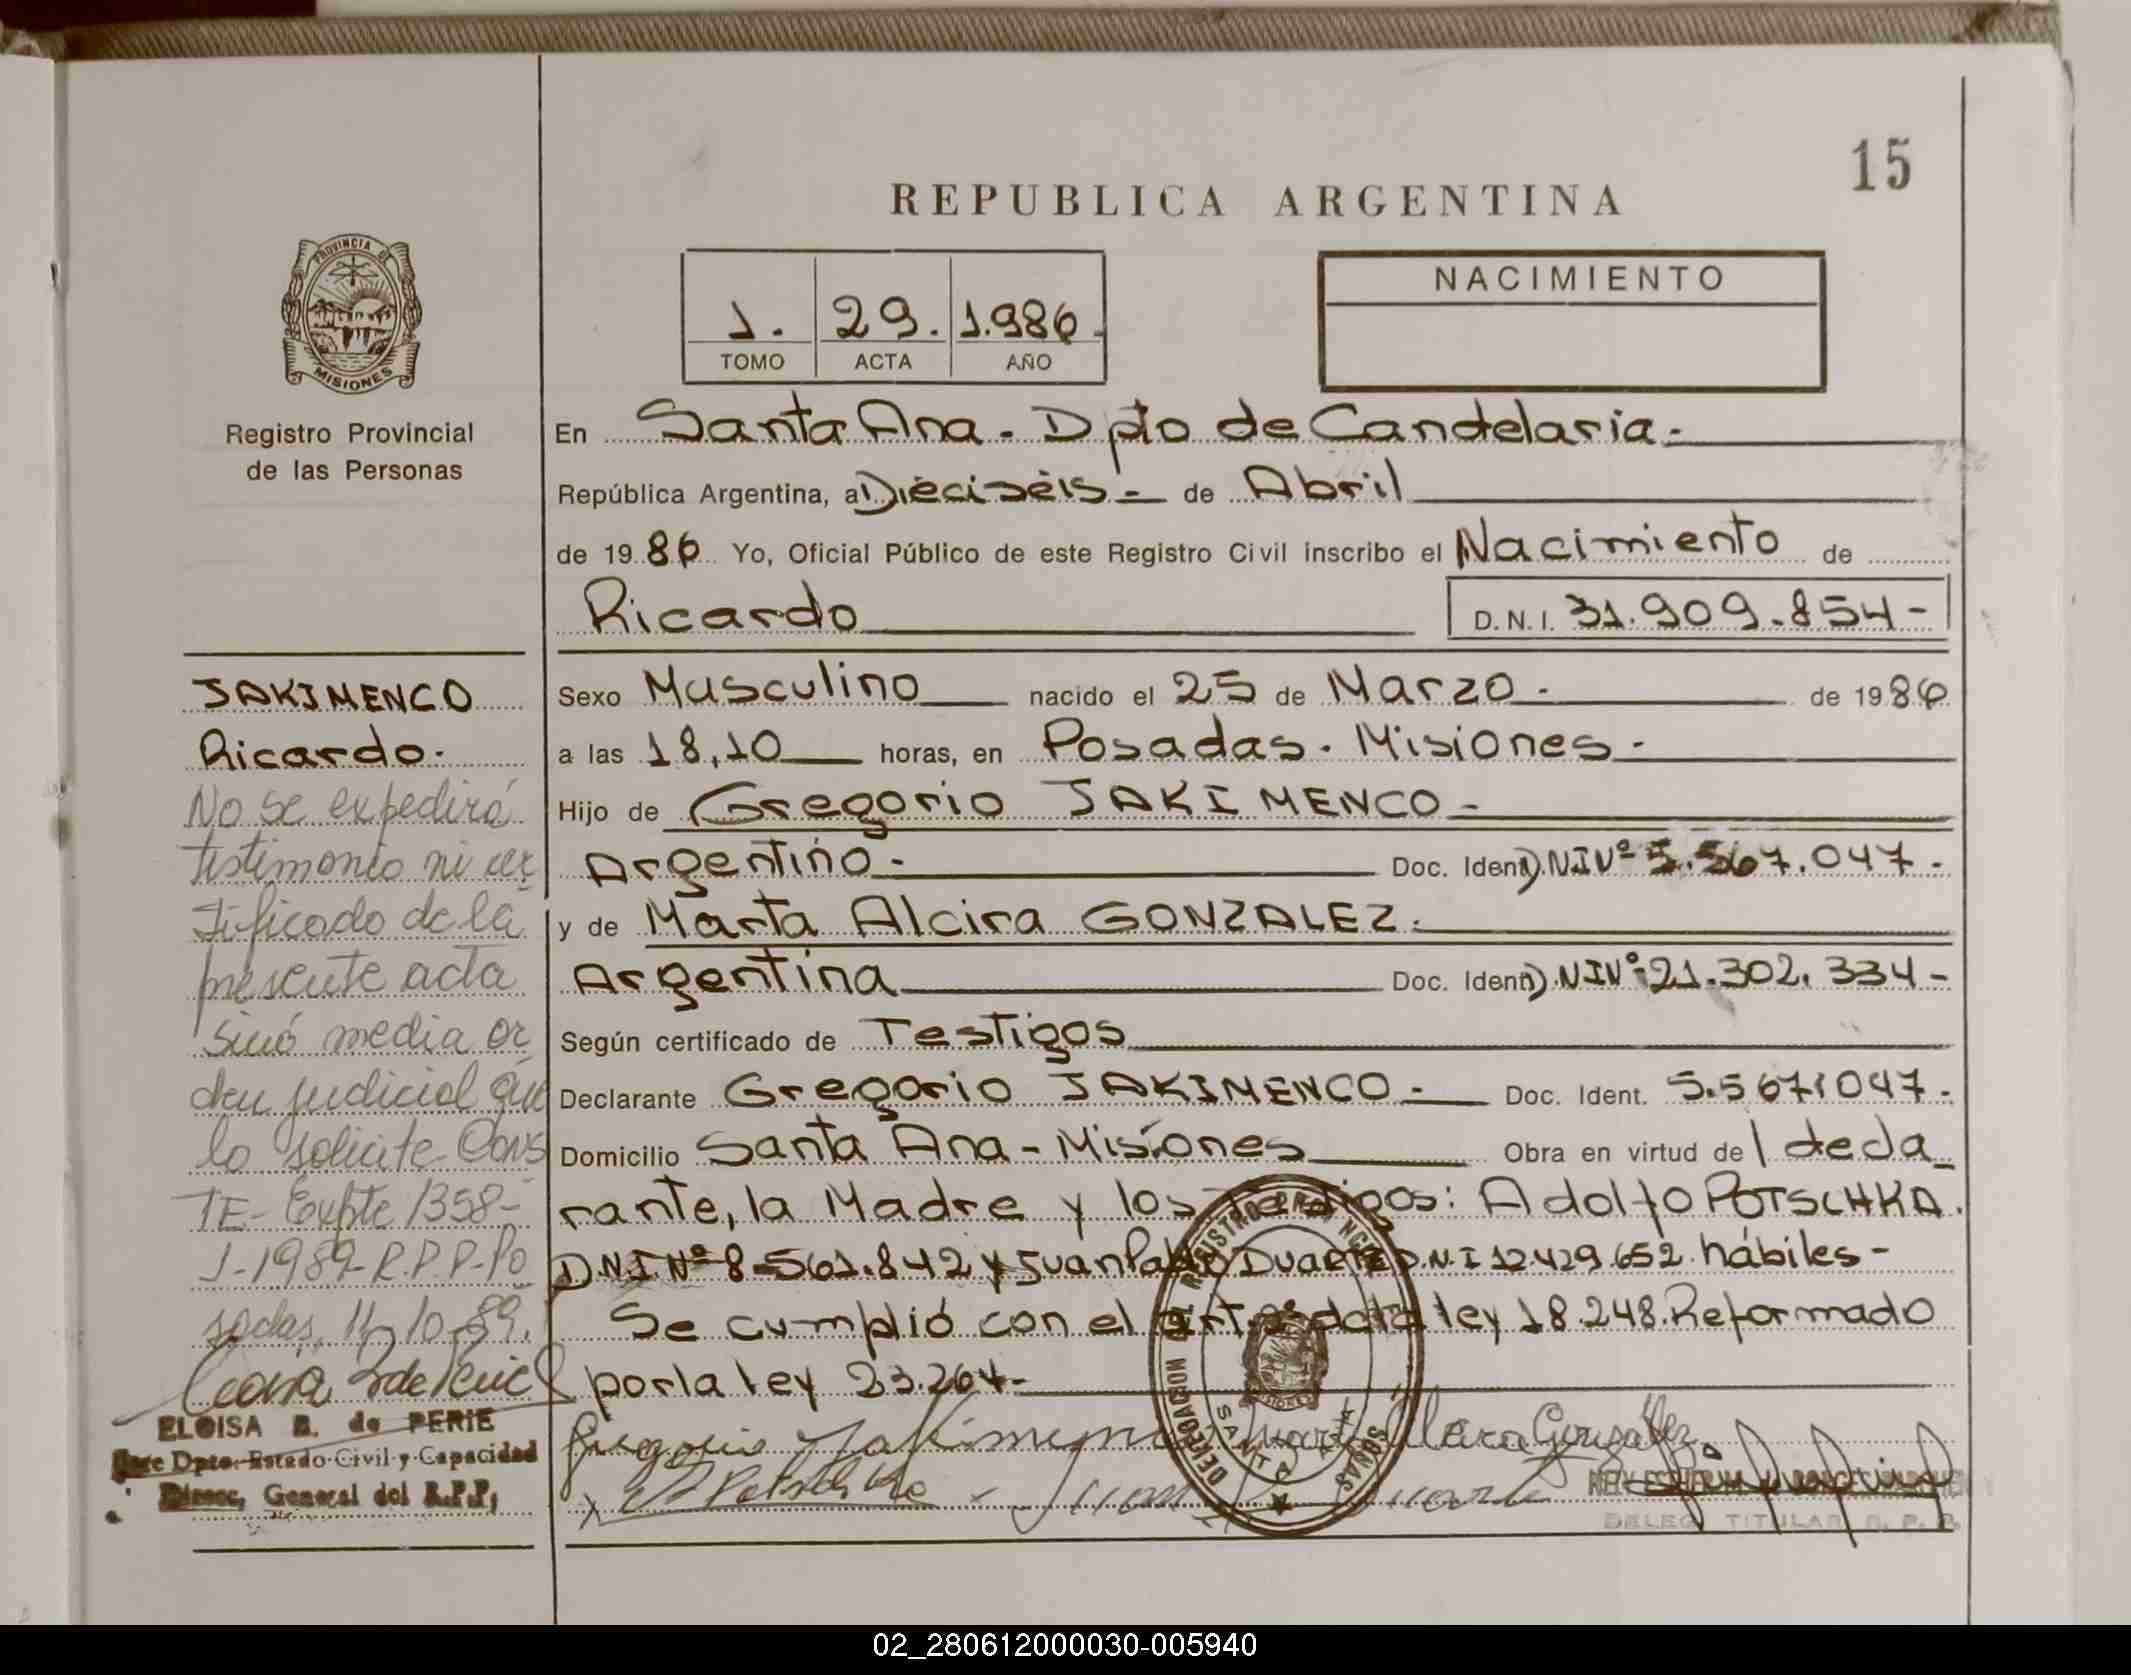 15
REPUBLICA ARGENTINA
PROVINCIA DE
MISIONES
Registro Provincial
de las Personas
1. 29. 1.986.
TOMO ACTA AÑO
NACIMIENTO
En Santa Ana. Dpto de Candelaria.
República Argentina, a Dieciséis - de Abril
de 19 86 Yo, Oficial Público de este Registro Civil inscribo el Nacimiento de
Ricardo D.N.I. 31.909.854-
Sexo Masculino nacido el 25 de Marzo - de 19 86
a las 18,10 horas, en Posadas. Misiones -
Hijo de Gregorio JAKIMENCO -
Argentino - Doc. Ident. D.NI Nº 5.567.047.
y de Marta Alcira GONZALEZ.
Argentina Doc. Ident. D.NI Nº 21.302.334-
Según certificado de Testigos
Declarante Gregorio JAKIMENCO - Doc. Ident. 5.567.047.
Domicilio Santa Ana - Misiones Obra en virtud de l decla
rante, la Madre y los testigos: Adolfo POTSCHKA.
D.N.I Nº 8.561.842 y Juan Pablo DUARTE D.N.I 12.429.652 hábiles -
Se cumplió con el art. de la ley 18.248. Reformado
por la ley 23.264-
JAKIMENCO
Ricardo.
No se expedirá
testimonio ni cer
tificado de la
presente acta
sinó media or
den judicial que
lo solicite. Cons
TE- Expte 1358-
J-1989- R.P.P- Po
sadas, 11-10-89.
ELOISA B. de PERIE
Jefe Dpto. Estado Civil y Capacidad
Direcc. General del R.P.P.
Gregorio Jakimenco Marta Alcira González
A Potschka Juan P Duarte
DELEG. TITULAR R. P. P.
02_280612000030-005940